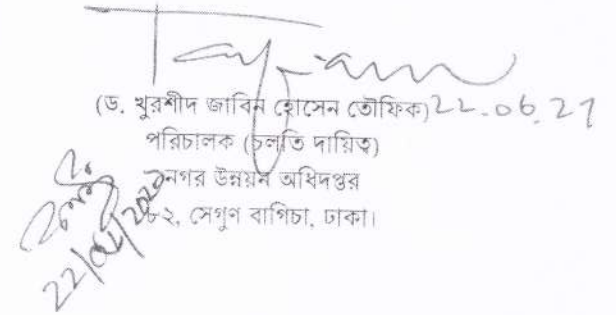 (ড. খুরশীদ জাবিন হোসেন তৌফিক) 22.06.21
পরিচালক (চলতি দায়িত্ব)
নগর উন্নয়ন অধিদপ্তর
৮২, সেগুণ বাগিচা, ঢাকা।